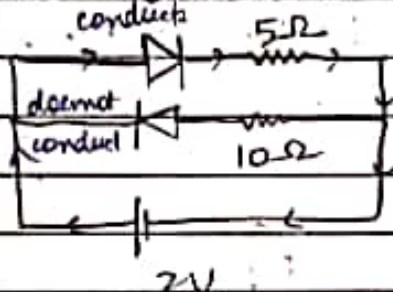 conducts
5Ω
doesnot
conduct
10Ω
2V